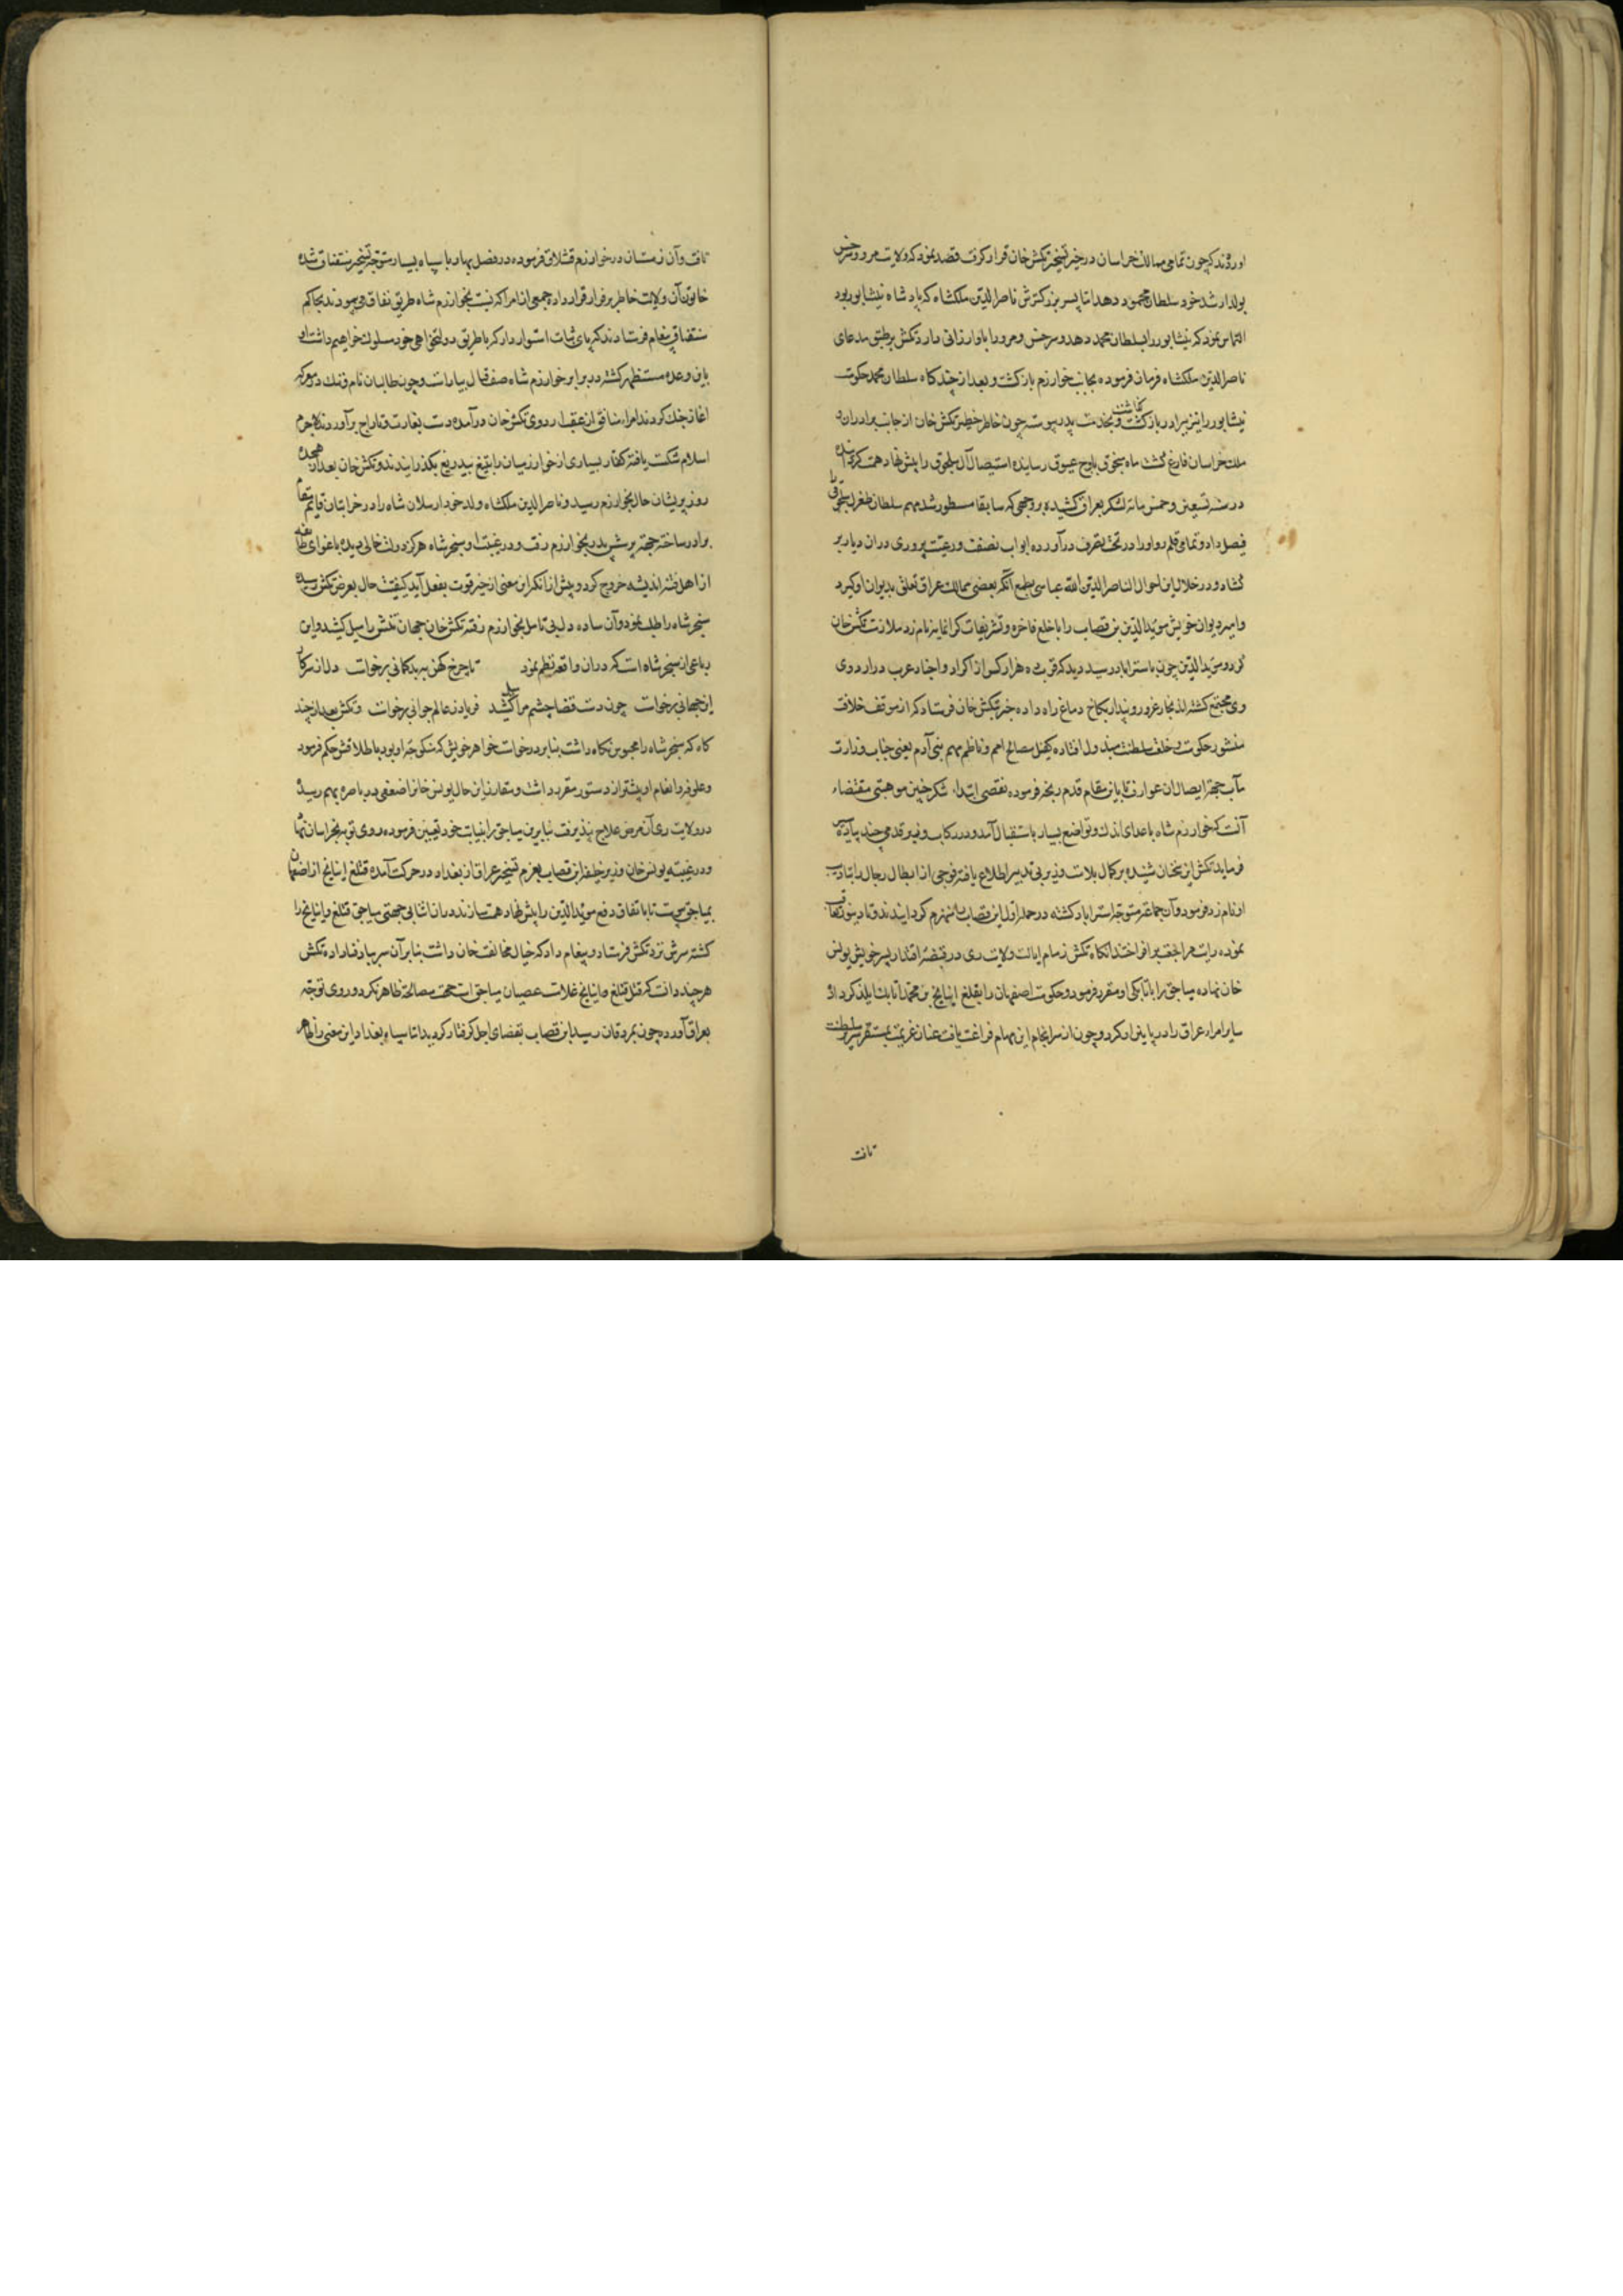 آورده‌اند که چون تمامی ممالک خراسان در حیز تسخیر تکش خان قرار گرفت قصد نمود که ولایت مرو و سرخس
بولد ارشد خود سلطان محمد دهد اما پسر بزرکترش ناصر الدین ملکشاه که پادشاه نیشابور بود
التماس نمود که نیشابور را بسلطان محمد دهد و سرخس و مرو را باو ارزانی دارد تکش بر طبق مدعای
ناصر الدین ملکشاه فرمان فرموده بجانب خوارزم بازکشت و بعد از چند کاه سلطان محمد حکومت
نیشابور را نیز ببرادر بازکذاشت و بخدمت پدر پیوست چون خاطر خطیر تکش خان از جانب برادران و
ملک خراسان فارغ کشت ماه سنجوق باوج عیوق رسانیده استیصال آل سلجوق را پیش نهاد همت کردانیده
در سنه تسعین و خمس مائه لشکر بعراق کشیده بر وجهی که سابقا مسطور شد مهم سلطان طغرل سلجوقی
فیصل داد و تمامی قلمرو او را در تحت تصرف درآورده ابواب نصفت و رعیت پروری در آن دیار بر
کشاد و در خلال این احوال الناصر الدین الله عباسی بطمع آنکه بعضی ممالک عراق تعلق بدیوان او کیرد
وامیر دیوان خویش موید الدین بن قصاب را با خلع فاخره و تشریفات کرانمایه نامزد ملازمت تکش خان
کرد و موید الدین چون باستراباد رسید دید که قریب ده هزار کس از اکراد و اجناد عرب در اردوی
وی مجتمع کشته اند بخار غرور و پندار بکاخ دماغ راه داده خبر بتکش خان فرستاد که از موقف خلافت
منشور حکومت و خلعت سلطنت مبذول افتاده کفیل مصالح امم و ناظم مهم بنی آدم یعنی جناب وزارت
مآب جهة ایصال آن عوارف تا باین مقام قدم رنجه فرموده نقصی ابتدا، شکر چنین موهبتی مقتضاء
آنست که خوارزم شاه با عدای اندک و تواضع بسیار باستقبال آمده و در رکاب وزیر قدمی چند پیاده
فرماید تکش این سخنان شنیده بر کمال بلاهت وزیر بی تدبیر اطلاع یافته فوجی از ابطال رجال را بتادیب
او نامزد فرمود و آن جماعة متوجه استراباد کشته در حمله اول ابن قصاب را منهزم کردانیدند و تا دینور تعاقب
نموده رایت مراجعت برافراختند آنکاه تکش زمام ایالت ولایت ری در قبضه اقتدار پسر خویش یونس
خان نهاده میاجق را باتابکی او مقرر فرمود و حکومت اصفهان را بقتلغ اینانج بن محمد اتابک ایلدکز داد
سایر امراء عراق را در پایه‌ او کرد و چون از سرانجام این مهام فراغت یافت عنان عزیمت بمستقر سریر سلطنت
تافت
تافت و آن زمستان در خوارزم قشلاق فرموده در فصل بهار با سپاه بسیار متوجه تسخیر سقناق شده
خاتون آن ولایت خاطر بر فرار قرار داده جمعی از امرا که نسبت بخوارزم شاه طریق نفاق می پیمودند بحاکم
سقناق پیغام فرستادند که پای ثبات استوار دار که ما طریق دولتخواهی خود سلوک خواهیم داشت او
باین وعده مستظهر کشته در برابر خوارزم شاه صف قتال بیاراست و چون طالبان نام و ننک در معرکه
آغاز جنک کردند امراء منافق از عقب اردوی تکش خان درآمده دست بغارت و تاراج برآوردند لاجرم
اسلام شکست یافته کفار بسیاری از خوارزمیان را بتیغ بیدریغ بکذرانیدند و تکش خان بعد از هجده
روز پریشان حال بخوارزم رسید و ناصر الدین ملکشاه ولد خود ارسلان شاه را در خراسان قایم مقام
برادر ساخته جهة پرسش پدر بخوارزم رفت و در غیبت او سنجر شاه مرکز دولت خالی دیده باغوای طایفه
از اهل فتنه اندیشه خروج کرد و پیش از آنکه این معنی از حیز قوت بفعل آید کیفیت حال بعرض تکش رسیده
سنجر شاه را طلب نمود و آن ساده دل بی تامل بخوارزم رفته تکش خان جهان بینش را میل کشید و این
رباعی از سنجر شاه است که در آن واقعه نظم نمود تا چرخ کهن به بدکمانی برخاست دل از سر کار
این جهانی برخاست چون دست قضا چشم مرا میل کشید فریاد ز عالم جوانی برخاست و تکش بعد از چند
کاه که سنجر شاه را محبوس نکاه داشت بنا بر درخواست خواهر خویش که منکوحه او بود باطلاقش حکم فرمود
و علوفه و انعام او بیشتر از دستور مقرر داشت و مقارن این حال یونس خان را ضعفی در باصره بهم رسیده
در ولایت ری آن مرض علاج نپذیرفت بنابرین میاجق را بنیابت خود تعیین فرموده روی توجه بخراسان نهاد
و در غیبت یونس خان وزیر خلیفه ابن قصاب بعزم تسخیر عراق از بغداد در حرکت آمده قتلغ اینانج از اصفهان
بمیاجق پیوست تا باتفاق دفع موید الدین را پیش نهاد همت سازند در آن اثنا بی جهتی میاجق قتلغ اینانج را
کشته سرش نزد تکش فرستاد و پیغام داد که خیال مخالفت خان داشت بنابر آن سر بباد فنا داد تکش
هر چند دانست که قتل قتلغ اینانج علامت عصیان میاجق است جهت مصالحة ظاهر نکرد و روی توجه
بعراق آورده چون بمردقان رسید ابن قصاب بقضای اجل کرفتار کردید اما سپاه بغداد این معنی را ظاهر